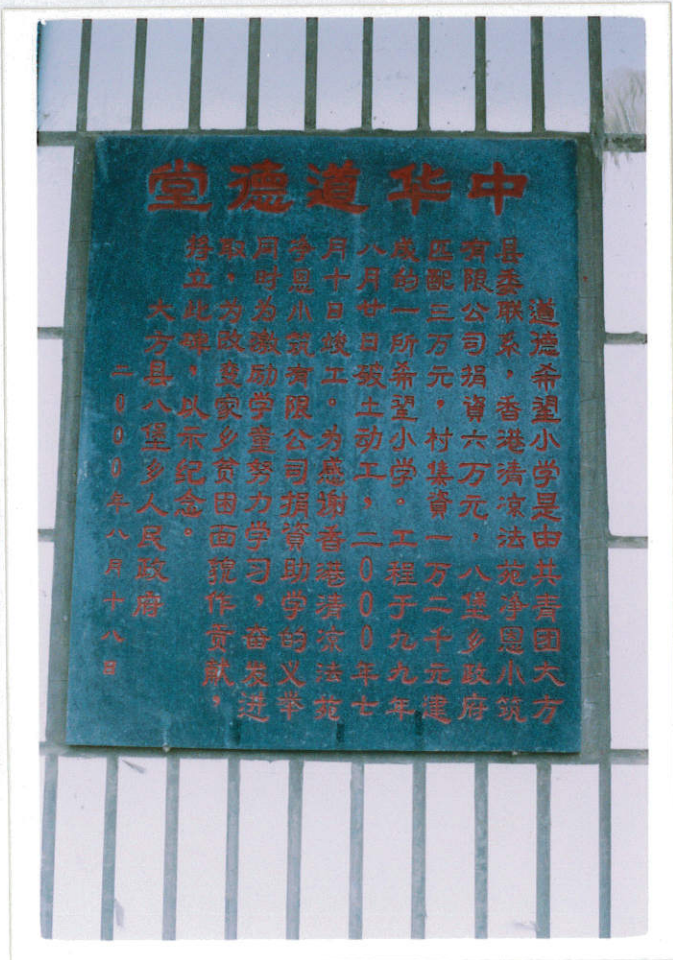 中华道德堂
道德希望小学是由共青团大方
县委联系，香港清凉法苑净恩小筑
有限公司捐資六万元，八堡乡政府
匹配三万元。村集資一万二千元建
成的一所希望小学。工程于九九年
八月廿日破土动工，二000年七
月十日竣工。为感谢香港清凉法苑
净恩小筑有限公司捐資助学的义举
同时为激励学童努力学习，奋发进
取，为改变家乡贫困面貌作贡献，
将立此碑，以示纪念。
大方县八堡乡人民政府
二000年八月十八日